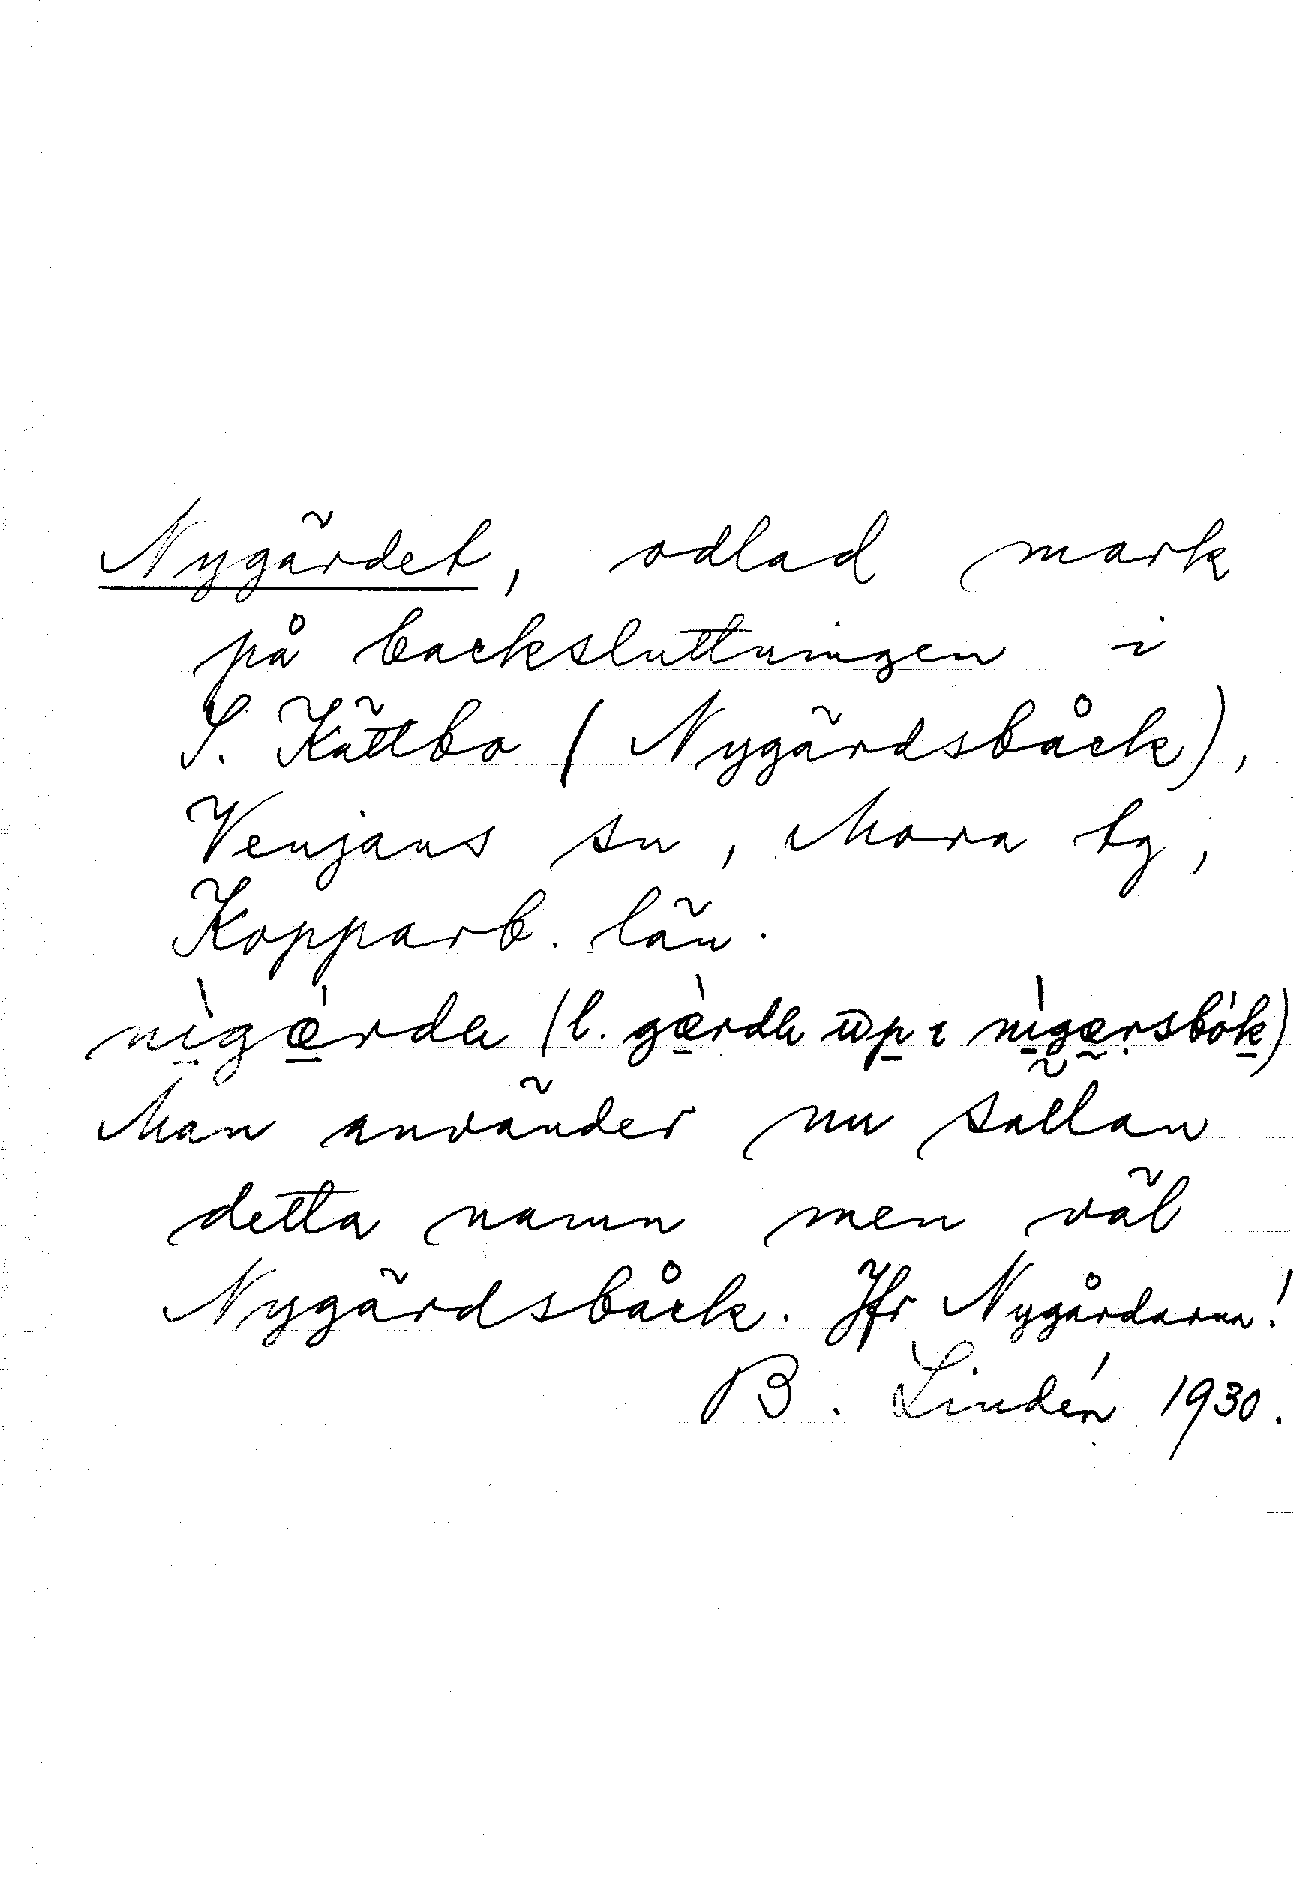 Nygärdet, odlad mark
på backsluttningen i
S. Kättbo (Nygärdsbåck),
Venjans sn, Mora tg,
Kopparb. län.
nìgǽrdä (l. gæ̀rdä ɯp i nìgærsbók)
Man använder nu sällan
detta namn men väl
Nygärdsbåck. Jfr Nygårdarna!
B. Lindén 1930.